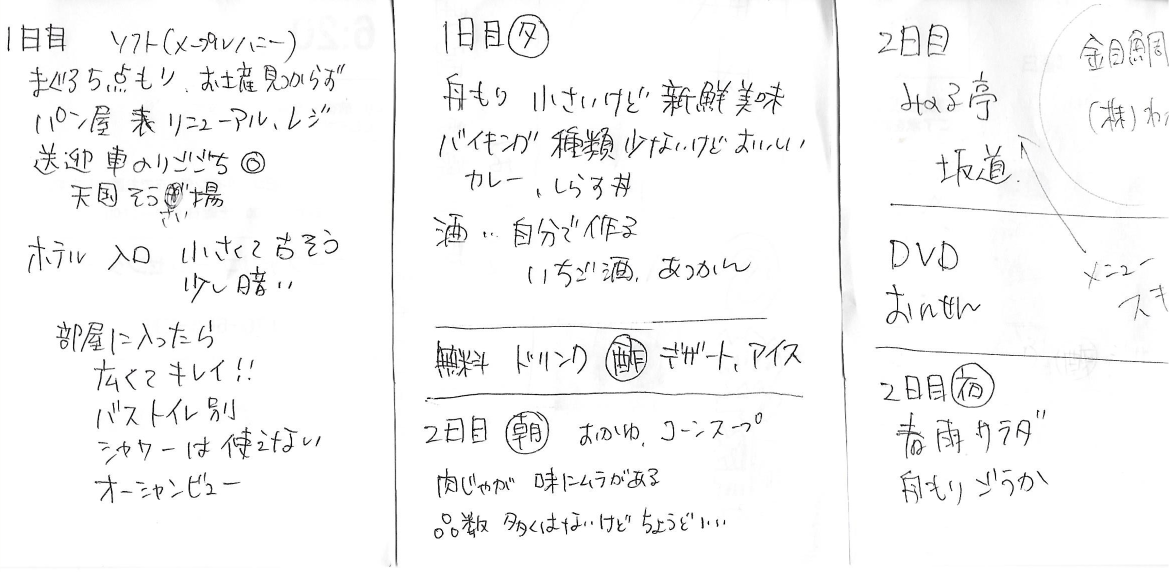 1日目 ソフト(メープルハニー)
まぐろ5点もり、お土産見つからず
パン屋 裏 リニューアル、レジ
送迎車のりごごち◎
天国そう場
さい
ホテル 入口 小さくて古そう
少し暗い
部屋に入ったら
広くてキレイ!!
バストイレ別
シャワーは使えない
オーシャンビュー
1日目 夕
舟もり 小さいけど 新鮮美味
バイキングが 種類少ないけどおいしい
カレー、しらす丼
酒… 自分で作る
いちご酒、あつかん
無料 ドリンク 酢 デザート、アイス
2日目 朝 おかゆ、コーンスープ
肉じゃが 味にムラがある
品数 多くはないけどちょうどいい
2日目
坂道
金目鯛
(株)わ
メニュー
スキ
DVD
おんせん
2日目 夜
春雨サラダ
舟もり ごうか